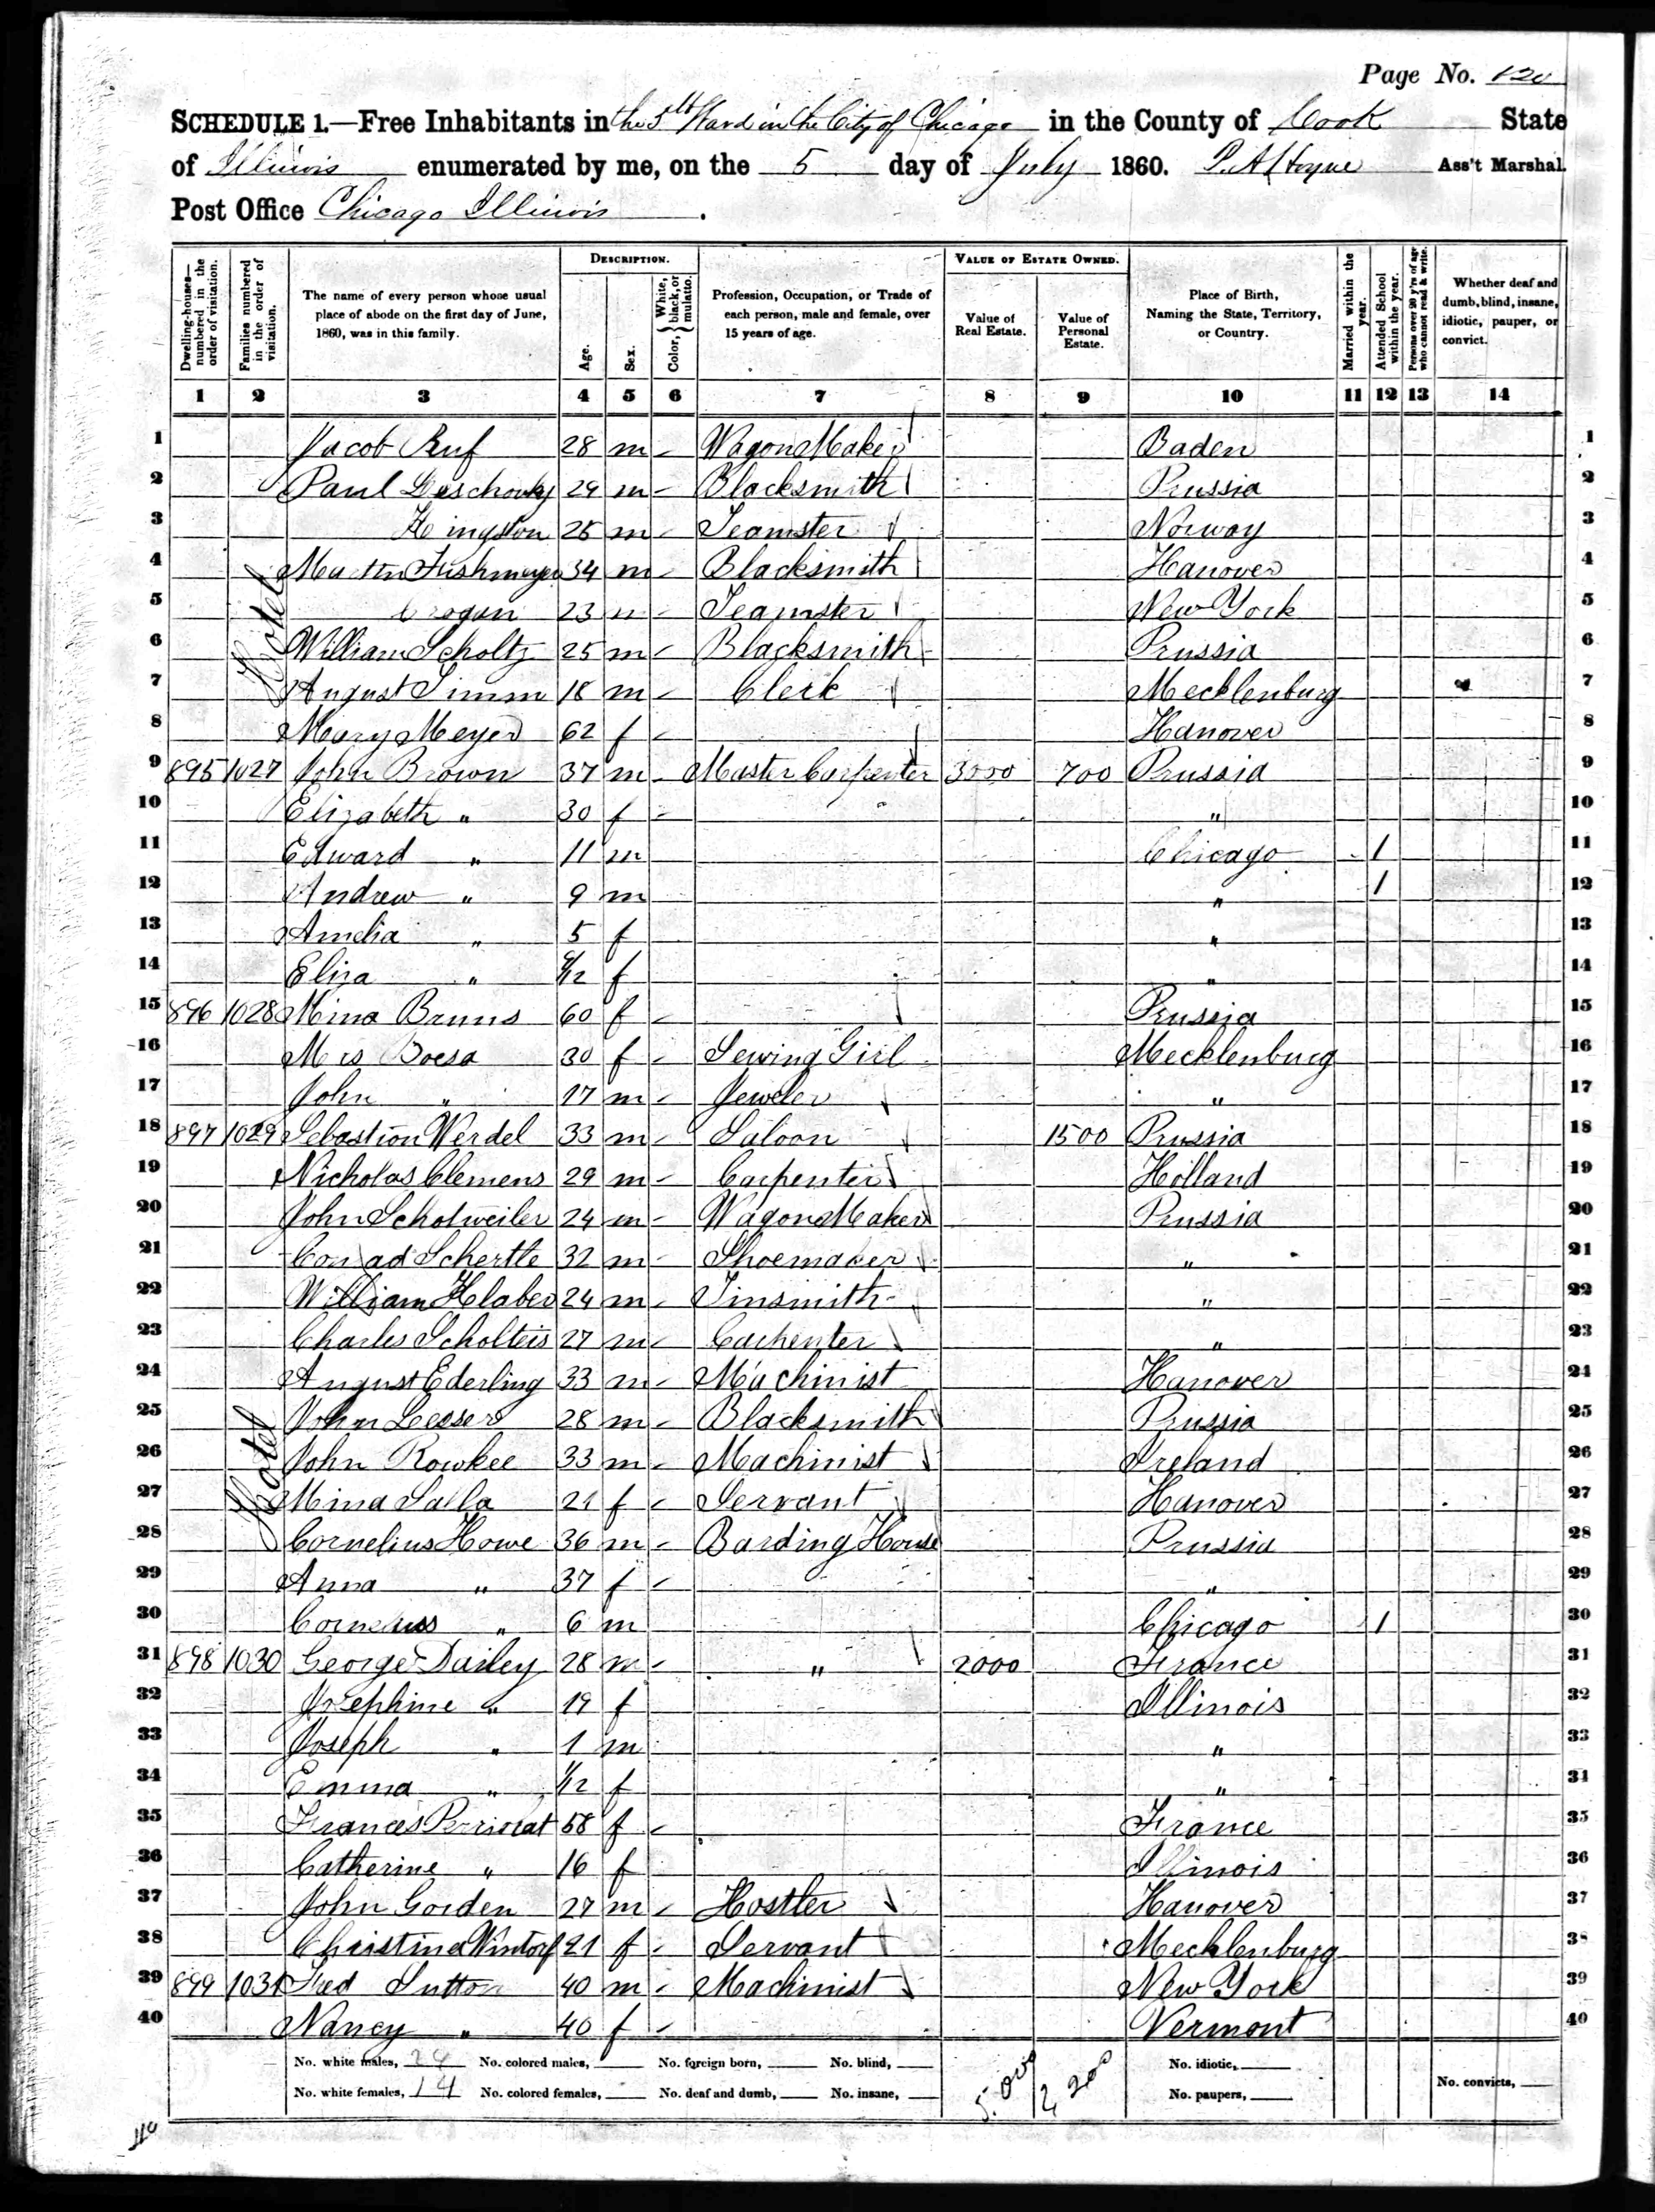 Page No. 120
SCHEDULE 1.—Free Inhabitants in the 5th Ward in the City of Chicago in the County of Cook State
of Illinois enumerated by me, on the 5 day of July 1860. P. A. Hoyne Ass't Marshal.
Post Office Chicago Illinois .
DESCRIPTION. VALUE OF ESTATE OWNED.
Dwelling-houses—numbered in the order of visitation. Families numbered in the order of visitation. The name of every person whose usual place of abode on the first day of June, 1860, was in this family. Age. Sex. Color, White, black, or mulatto. Profession, Occupation, or Trade of each person, male and female, over 15 years of age. Value of Real Estate. Value of Personal Estate. Place of Birth, Naming the State, Territory, or Country. Married within the year. Attended School within the year. Persons over 20 y'rs of age who cannot read & write. Whether deaf and dumb, blind, insane, idiotic, pauper, or convict.
1 2 3 4 5 6 7 8 9 10 11 12 13 14
1 Jacob Ruf 28 m - Wagon Maker Baden 1
2 Paul 29 m - Blacksmith Prussia 2
3 25 m - Teamster Norway 3
4 Martin Fishmeyer 34 m - Blacksmith Hanover 4
Hotel
5 23 m - Teamster New York 5
6 William Scholtz 25 m - Blacksmith Prussia 6
7 August Timm 18 m - Clerk Mecklenburg 7
8 Mary Meyer 62 f - Hanover 8
9 895 1027 John Brown 37 m - Master Carpenter 3000 700 Prussia 9
10 Elizabeth " 30 f - " 10
11 Edward " 11 m Chicago 1 11
12 Andrew " 9 m " 1 12
13 Amelia " 5 f " 13
14 Eliza " /12 f " 14
15 896 1028 Mina Bruns 60 f - Prussia 15
16 Mrs Boesa 30 f - Sewing Girl Mecklenburg 16
17 John " 17 m - Jeweler " 17
18 897 1029 Sebastion Werdel 33 m - Saloon 1500 Prussia 18
19 Nicholas Clemens 29 m - Carpenter Holland 19
20 John Scholweiler 24 m - Wagon Maker Prussia 20
21 Conrad Schertle 32 m - Shoemaker " 21
22 William Klaber 24 m - Tinsmith " 22
23 Charles Scholteis 27 m - Carpenter " 23
24 August Ederling 33 m - Machinist Hanover 24
25 John Lesser 28 m - Blacksmith Prussia 25
Hotel
26 John Rowkee 33 m - Machinist Ireland 26
27 Mina Salla 21 f - Servant Hanover 27
28 Cornelius Howe 36 m - Barding House Prussia 28
29 Anna " 37 f - " 29
30 Cornelius " 6 m Chicago 1 30
31 898 1030 George Dailey 28 m - " 2000 France 31
32 Josephine " 19 f Illinois 32
33 Joseph " 1 m " 33
34 Emma " 1/12 f " 34
35 Frances Perriorat 58 f - France 35
36 Catherine " 16 f Illinois 36
37 John Gorden 27 m - Hostler Hanover 37
38 Christina Wintorf 21 f - Servant Mecklenburg 38
39 899 1031 Fred Sutton 40 m - Machinist New York 39
40 Nancy " 40 f - Vermont 40
No. white males, 24 No. colored males, No. foreign born, No. blind, No. idiotic,
No. white females, 14 No. colored females, No. deaf and dumb, No. insane, 5.000 2200 No. paupers, No. convicts,